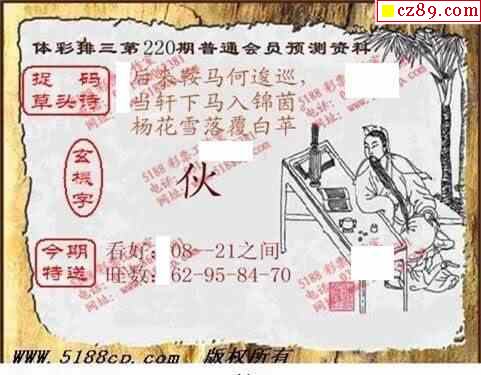 cz89.com
体彩排三第220期普通会员预测资料
捉码
草头诗
后来鞍马何逡巡,
当轩下马入锦茵
杨花雪落覆白苹
玄机字
伙
今期
特送
看好:08--21之间
旺数:62-95-84-70
www.5188cp.com 版权所有